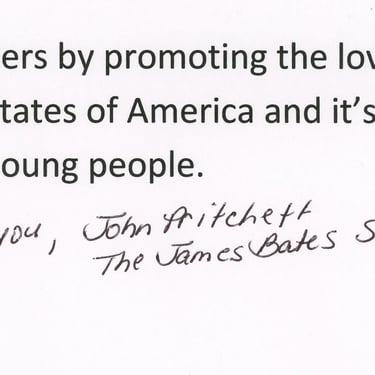 ers by promoting the lov
tates of America and it's
oung people.
you, John Pritchett
The James Bates S